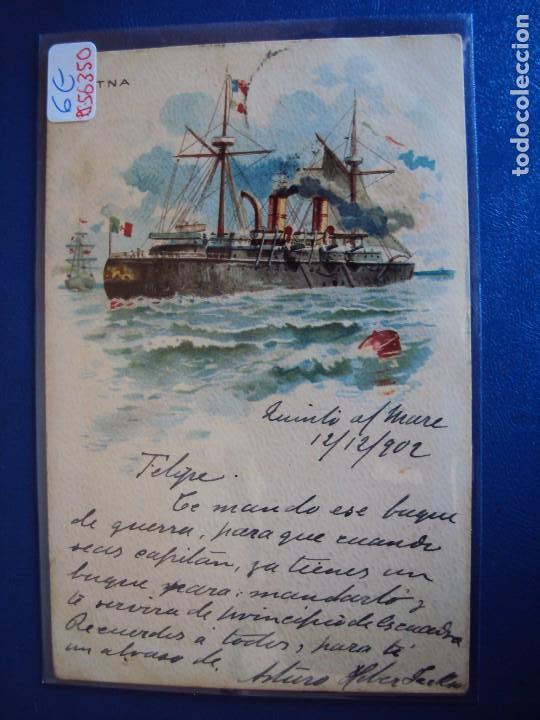 TNA
6€
P556350
Quinto al Mare
12/12/902
Felipe.
Te mando ese buque
de guerra, para que cuando
seas capitán, ya tienes un
buque para mandarlo y
te servira de principio de Escuadra
Recuerdos á todos, para ti
un abraso de Arturo
todocoleccion